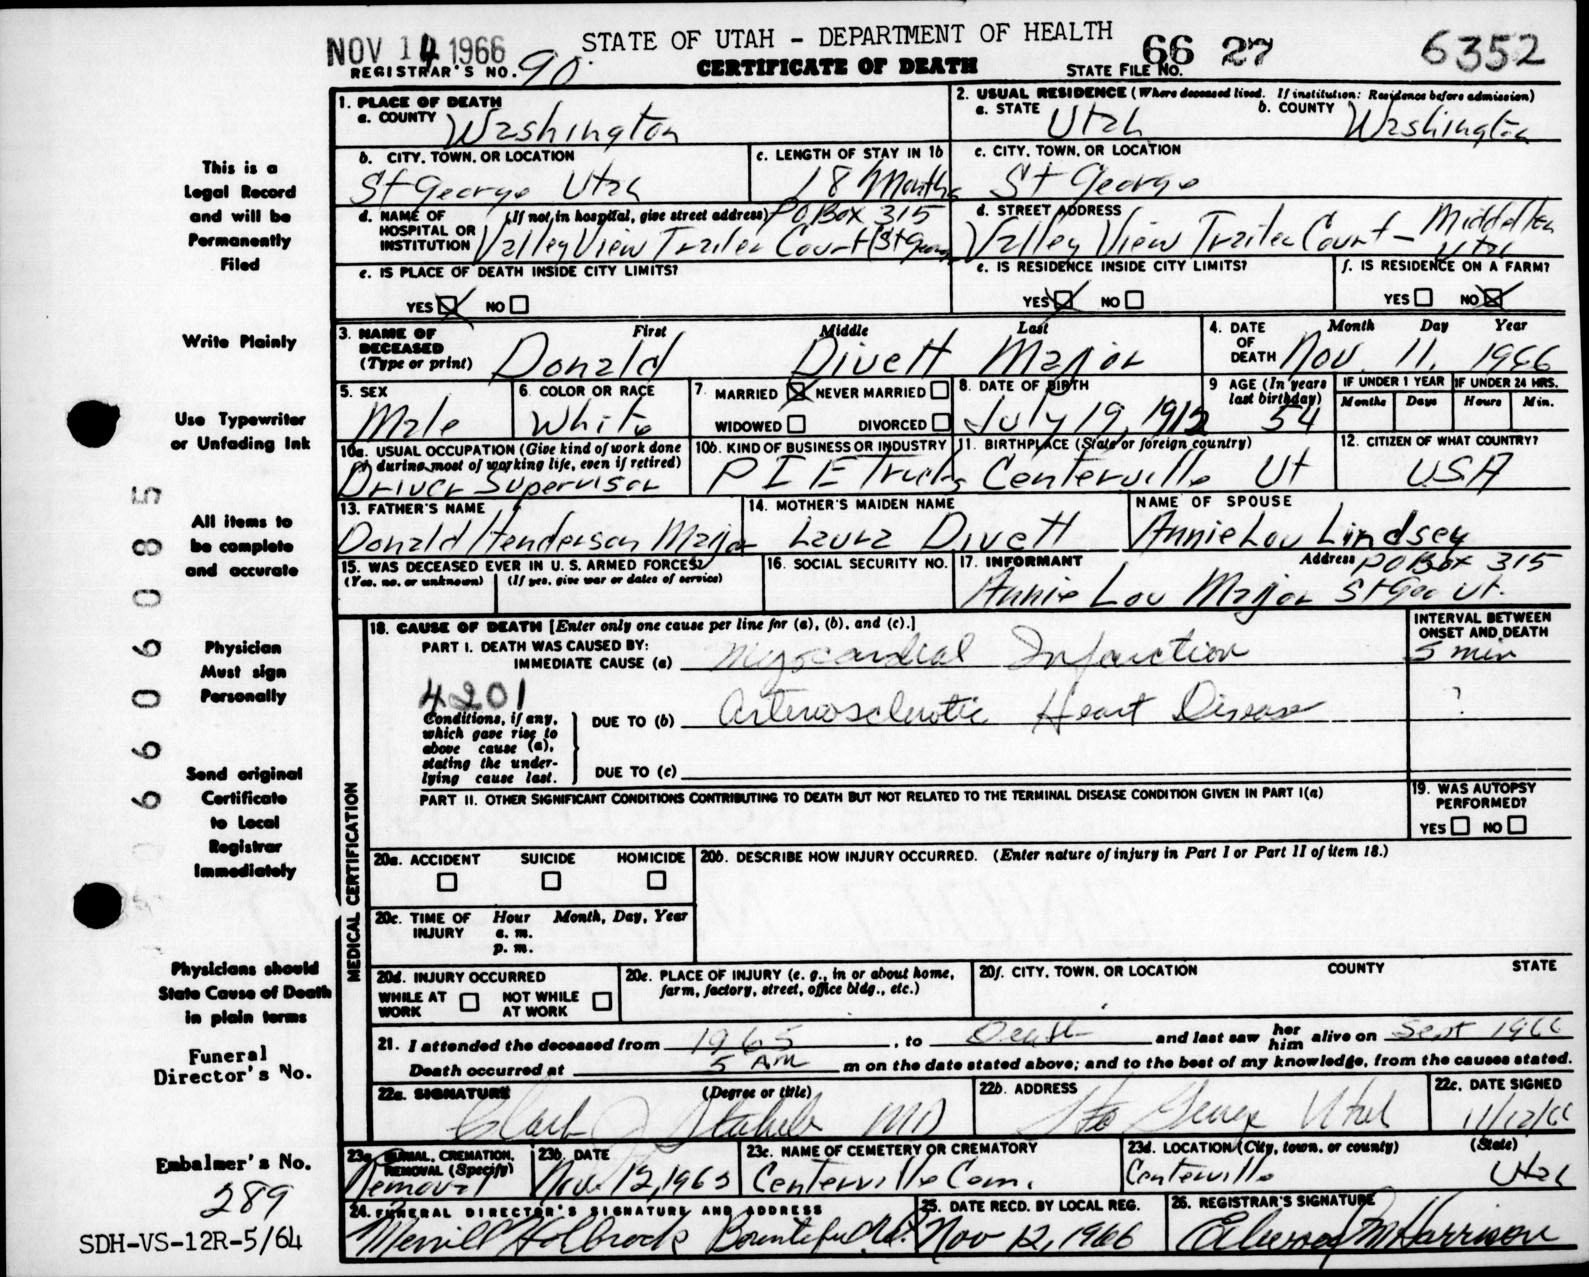 NOV 14 1966
STATE OF UTAH - DEPARTMENT OF HEALTH
66 27
6352
REGISTRAR'S NO. 90
CERTIFICATE OF DEATH
STATE FILE NO.
This is a
Legal Record
and will be
Permanently
Filed
Write Plainly
Use Typewriter
or Unfading Ink
All items to
be complete
and accurate
Physician
Must sign
Personally
Send original
Certificate
to Local
Registrar
Immediately
Physicians should
State Cause of Death
in plain terms
Funeral
Director's No.
Embalmer's No.
289
SDH-VS-12R-5/64
1. PLACE OF DEATH
a. COUNTY Washington
2. USUAL RESIDENCE (Where deceased lived. If institution: Residence before admission)
a. STATE Utah b. COUNTY Washington
b. CITY, TOWN, OR LOCATION
St George Utah
c. LENGTH OF STAY IN 1b
18 Months
c. CITY, TOWN, OR LOCATION
St George
d. NAME OF HOSPITAL OR INSTITUTION (If not in hospital, give street address) PO Box 315
Valley View Trailer Court (St George
d. STREET ADDRESS
Valley View Trailer Court - Middleton
Utah
e. IS PLACE OF DEATH INSIDE CITY LIMITS?
YES NO
e. IS RESIDENCE INSIDE CITY LIMITS?
YES NO
f. IS RESIDENCE ON A FARM?
YES NO
3. NAME OF DECEASED (Type or print)
First Middle Last
Donald Divett Major
4. DATE OF DEATH Month Day Year
Nov. 11, 1966
5. SEX
Male
6. COLOR OR RACE
White
7. MARRIED NEVER MARRIED
WIDOWED DIVORCED
8. DATE OF BIRTH
July 19, 1912
9 AGE (In years last birthday)
54
IF UNDER 1 YEAR
Months Days
IF UNDER 24 HRS.
Hours Min.
10a. USUAL OCCUPATION (Give kind of work done during most of working life, even if retired)
Driver Supervisor
10b. KIND OF BUSINESS OR INDUSTRY
P I E Trucks
11. BIRTHPLACE (State or foreign country)
Centerville Ut
12. CITIZEN OF WHAT COUNTRY?
USA
13. FATHER'S NAME
Donald Henderson Major
14. MOTHER'S MAIDEN NAME
Laura Divett
NAME OF SPOUSE
Annie Lou Lindsey
15. WAS DECEASED EVER IN U.S. ARMED FORCES?
(Yes, no, or unknown) (If yes, give war or dates of service)
16. SOCIAL SECURITY NO.
17. INFORMANT Address PO Box 315
Annie Lou Major St Geo Ut.
MEDICAL CERTIFICATION
18. CAUSE OF DEATH [Enter only one cause per line for (a), (b), and (c).]
INTERVAL BETWEEN ONSET AND DEATH
PART I. DEATH WAS CAUSED BY:
IMMEDIATE CAUSE (a) Myocardial Infarction 5 min
4201
Conditions, if any, which gave rise to above cause (a), stating the underlying cause last.
DUE TO (b) Arteriosclerotic Heart Disease ?
DUE TO (c)
PART II. OTHER SIGNIFICANT CONDITIONS CONTRIBUTING TO DEATH BUT NOT RELATED TO THE TERMINAL DISEASE CONDITION GIVEN IN PART I(a)
19. WAS AUTOPSY PERFORMED?
YES NO
20a. ACCIDENT SUICIDE HOMICIDE
20b. DESCRIBE HOW INJURY OCCURRED. (Enter nature of injury in Part I or Part II of item 18.)
20c. TIME OF INJURY Hour Month, Day, Year
a. m.
p. m.
20d. INJURY OCCURRED
WHILE AT WORK NOT WHILE AT WORK
20e. PLACE OF INJURY (e. g., in or about home, farm, factory, street, office bldg., etc.)
20f. CITY, TOWN, OR LOCATION COUNTY STATE
21. I attended the deceased from 1965, to Death and last saw her him alive on Sept 1966
Death occurred at 5 AM m on the date stated above; and to the best of my knowledge, from the causes stated.
22a. SIGNATURE (Degree or title)
MD
22b. ADDRESS
George Utah
22c. DATE SIGNED
11/12/66
23a. BURIAL, CREMATION, REMOVAL (Specify)
Removal
23b. DATE
Nov. 12, 1965
23c. NAME OF CEMETERY OR CREMATORY
Centerville Cem.
23d. LOCATION (City, town, or county) (State)
Centerville Utah
24. FUNERAL DIRECTOR'S SIGNATURE AND ADDRESS
Merrill Holbrook Bountiful Ut.
25. DATE RECD. BY LOCAL REG.
Nov 12, 1966
26. REGISTRAR'S SIGNATURE
Harrison
66060805